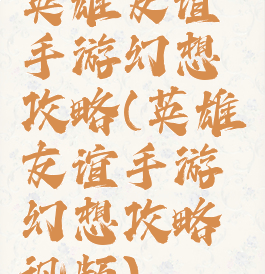 英雄友谊
手游幻想
攻略(英雄
友谊手游
幻想攻略
视频)